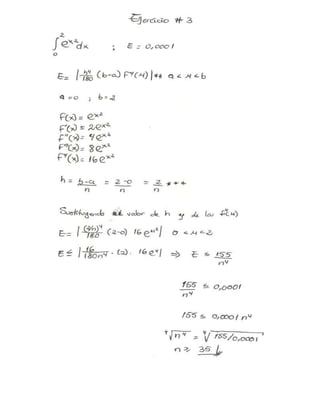 Ejercicio # 3
∫₀² eˣ² dx ; E = 0,0001
E = |-h⁴/180 (b-a) Fⁿ(M)| ** a < M < b
a = 0 ; b = 2
F(x) = eˣ²
F'(x) = 2eˣ²
F"(x) = 4eˣ²
F"'(x) = 8eˣ²
Fⁿ(x) = 16eˣ²
h = b-a/n = 2-0/n = 2/n ***
Sustituyendo el valor de h y de la fⁿ(M)
E = |(2/n)⁴/180 (2-0) 16eᴹ²| 0 < M < 2
E ≤ |16/180n⁴ . (2). 16e⁴| ⇒ E ≤ 155/n⁴
155/n⁴ ≤ 0,0001
155 ≤ 0,0001 n⁴
⁴√n⁴ = ⁴√155/0,0001
n ≥ 35